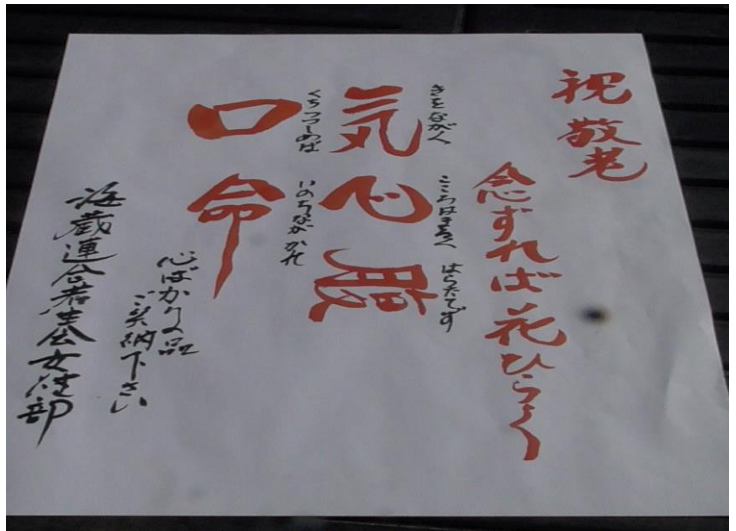 祝敬老
念ずれば花ひらく
きをながく こころはまるく はらたてず
気心腹
くちつつしめば いのちながかれ
口命
心ばかりの品
ご笑納下さい
海蔵連合老生会女性部